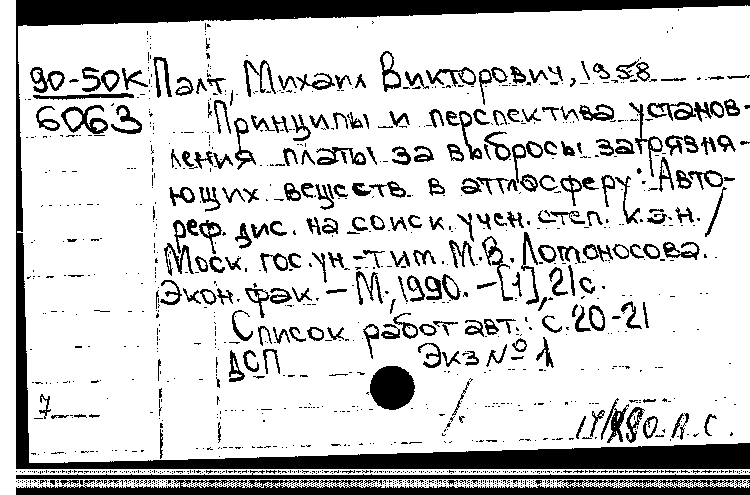 90-50К Палт, Михаил Викторович, 1958
6063 Принципы и перспектива установ-
ления платы за выбросы загрязня-
ющих веществ в атмосферу: Авто-
реф. дис. на соиск. учен. степ. к.э.н. /
Моск. гос. ун-т им. М.В. Ломоносова.
Экон. фак. - М., 1990. - [1], 21с.
Список работ авт.: с. 20-21
ДСП Экз № 1
7